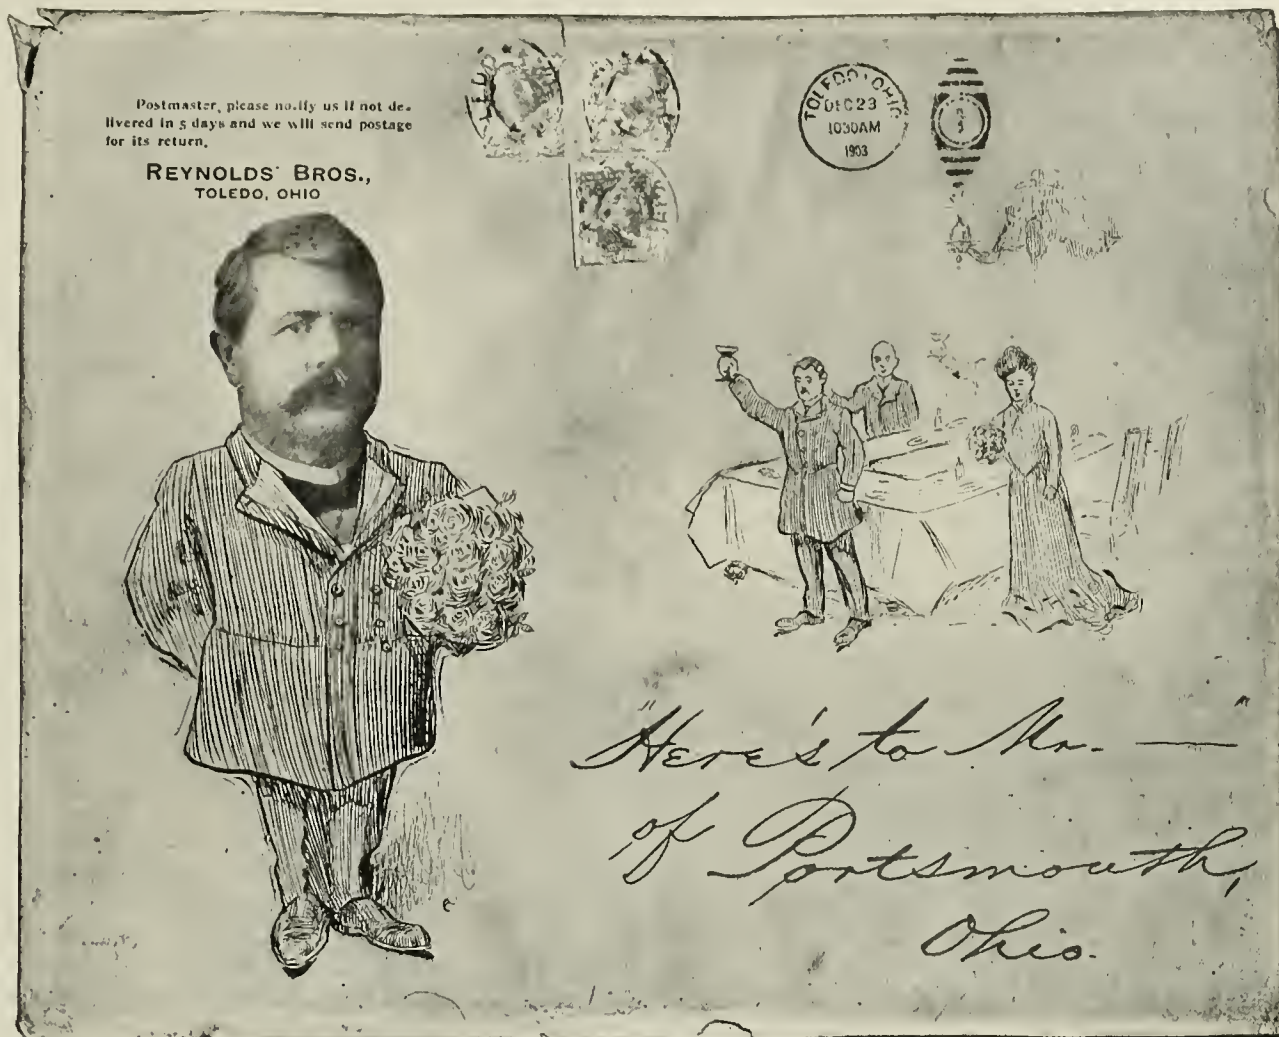 Postmaster, please notify us if not de-
livered in 5 days and we will send postage
for its return,
REYNOLDS' BROS.,
TOLEDO, OHIO
TOLEDO
TOLEDO, OHIO
DEC 23
1030AM
1903
"Here's to Mr. —"
of Portsmouth,
Ohio.